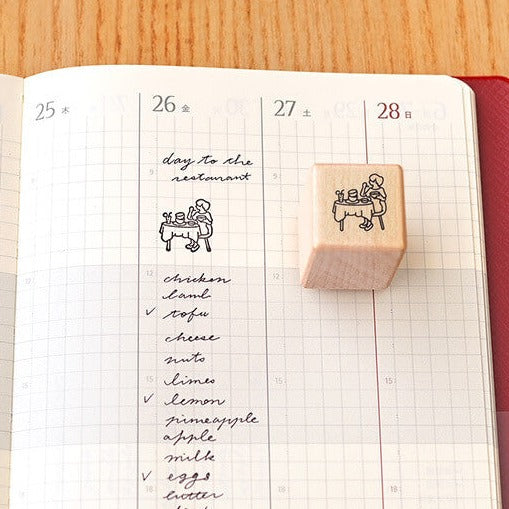 25 木
26 金
27 土
28 日
9
day to the
restaurant
12
chicken
lamb
✓ tofu
cheese
nuts
15
limes
✓ lemon
pineapple
apple
milk
✓ eggs
18
butter